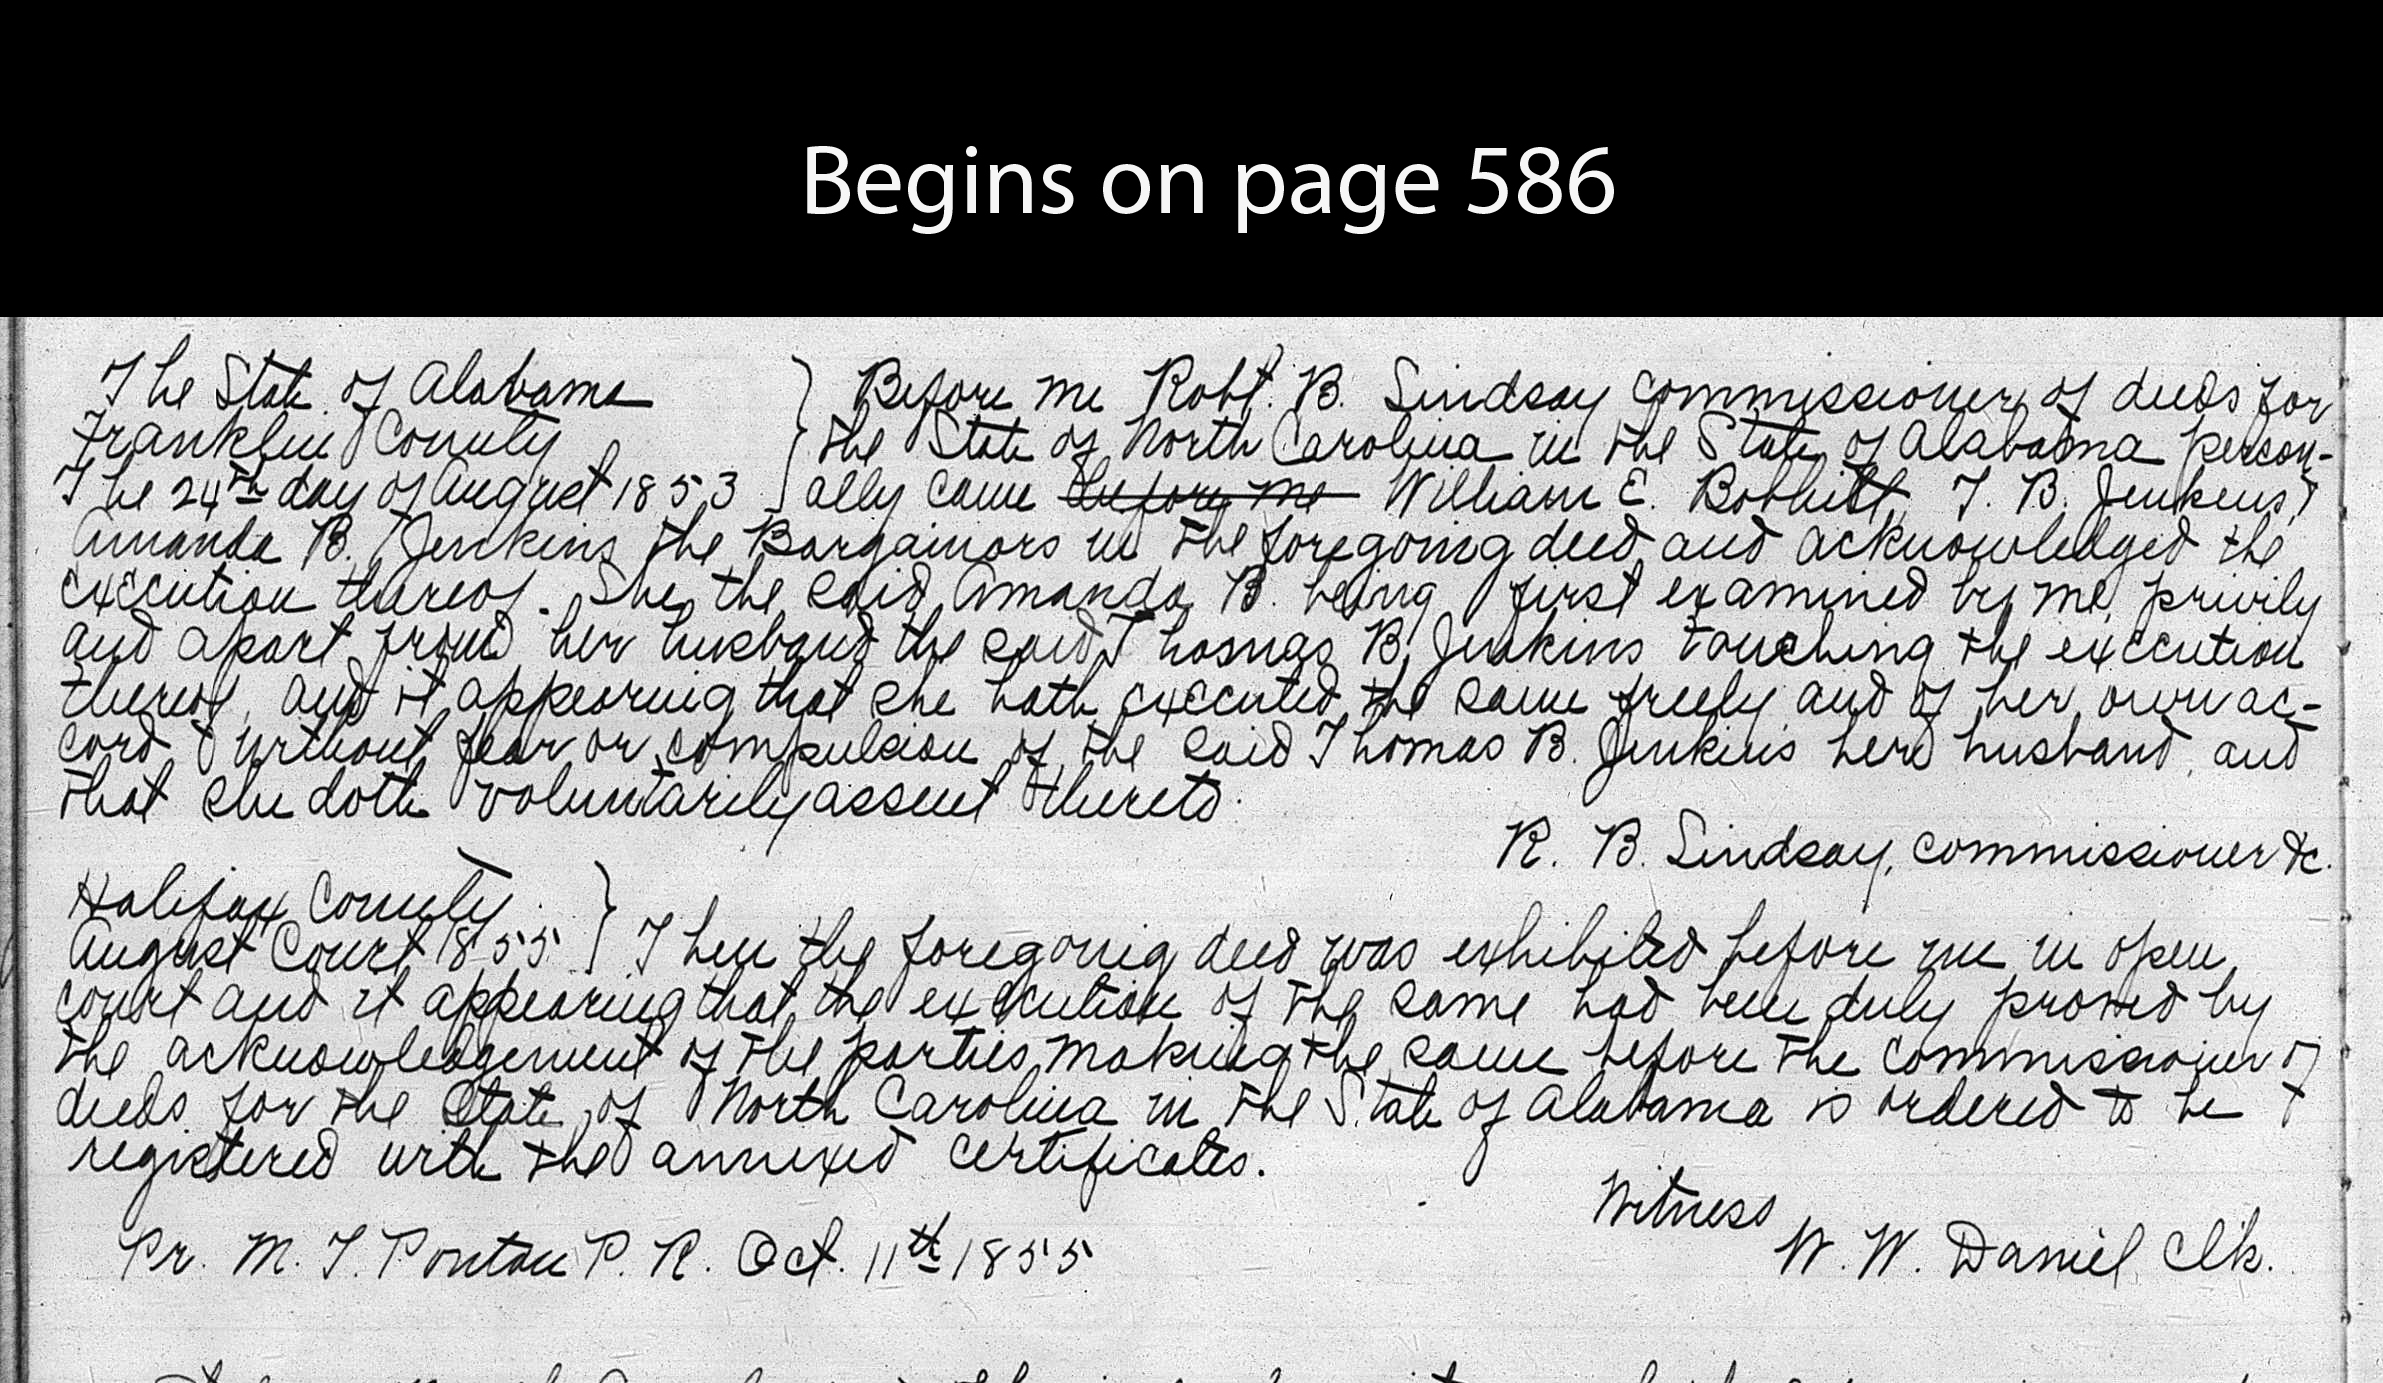 Begins on page 586
The State of Alabama } Before me Robt. B. Lindsay commissioner of deeds for
Franklin County } the State of North Carolina in the State of Alabama person-
The 24th day of August 1853 } ally came before me William E. Bobbitt, T. B. Jenkins, &
Amanda B. Jenkins the Bargainors in the foregoing deed and acknowledged the
execution thereof. She, the said Amanda B. being first examined by me, privily
and apart from her husband the said Thomas B. Jenkins touching the execution
thereof, and it appearing that she hath executed the same freely and of her own ac-
cord & without fear or compulsion of the said Thomas B. Jenkins her husband, and
that she doth voluntarily assent thereto.
R. B. Lindsay, commissioner &c.
Halifax County }
August Court 1855 } Then the foregoing deed was exhibited before me in open
court and it appearing that the execution of the same had been duly proved by
the acknowledgement of the parties making the same before the commissioner of
deeds for the State of North Carolina in the State of Alabama is ordered to be &
registered with the annexed certificates.
Witness
Pr. M. T. Ponton P. R. Oct. 11th 1855
W. W. Daniel Clk.